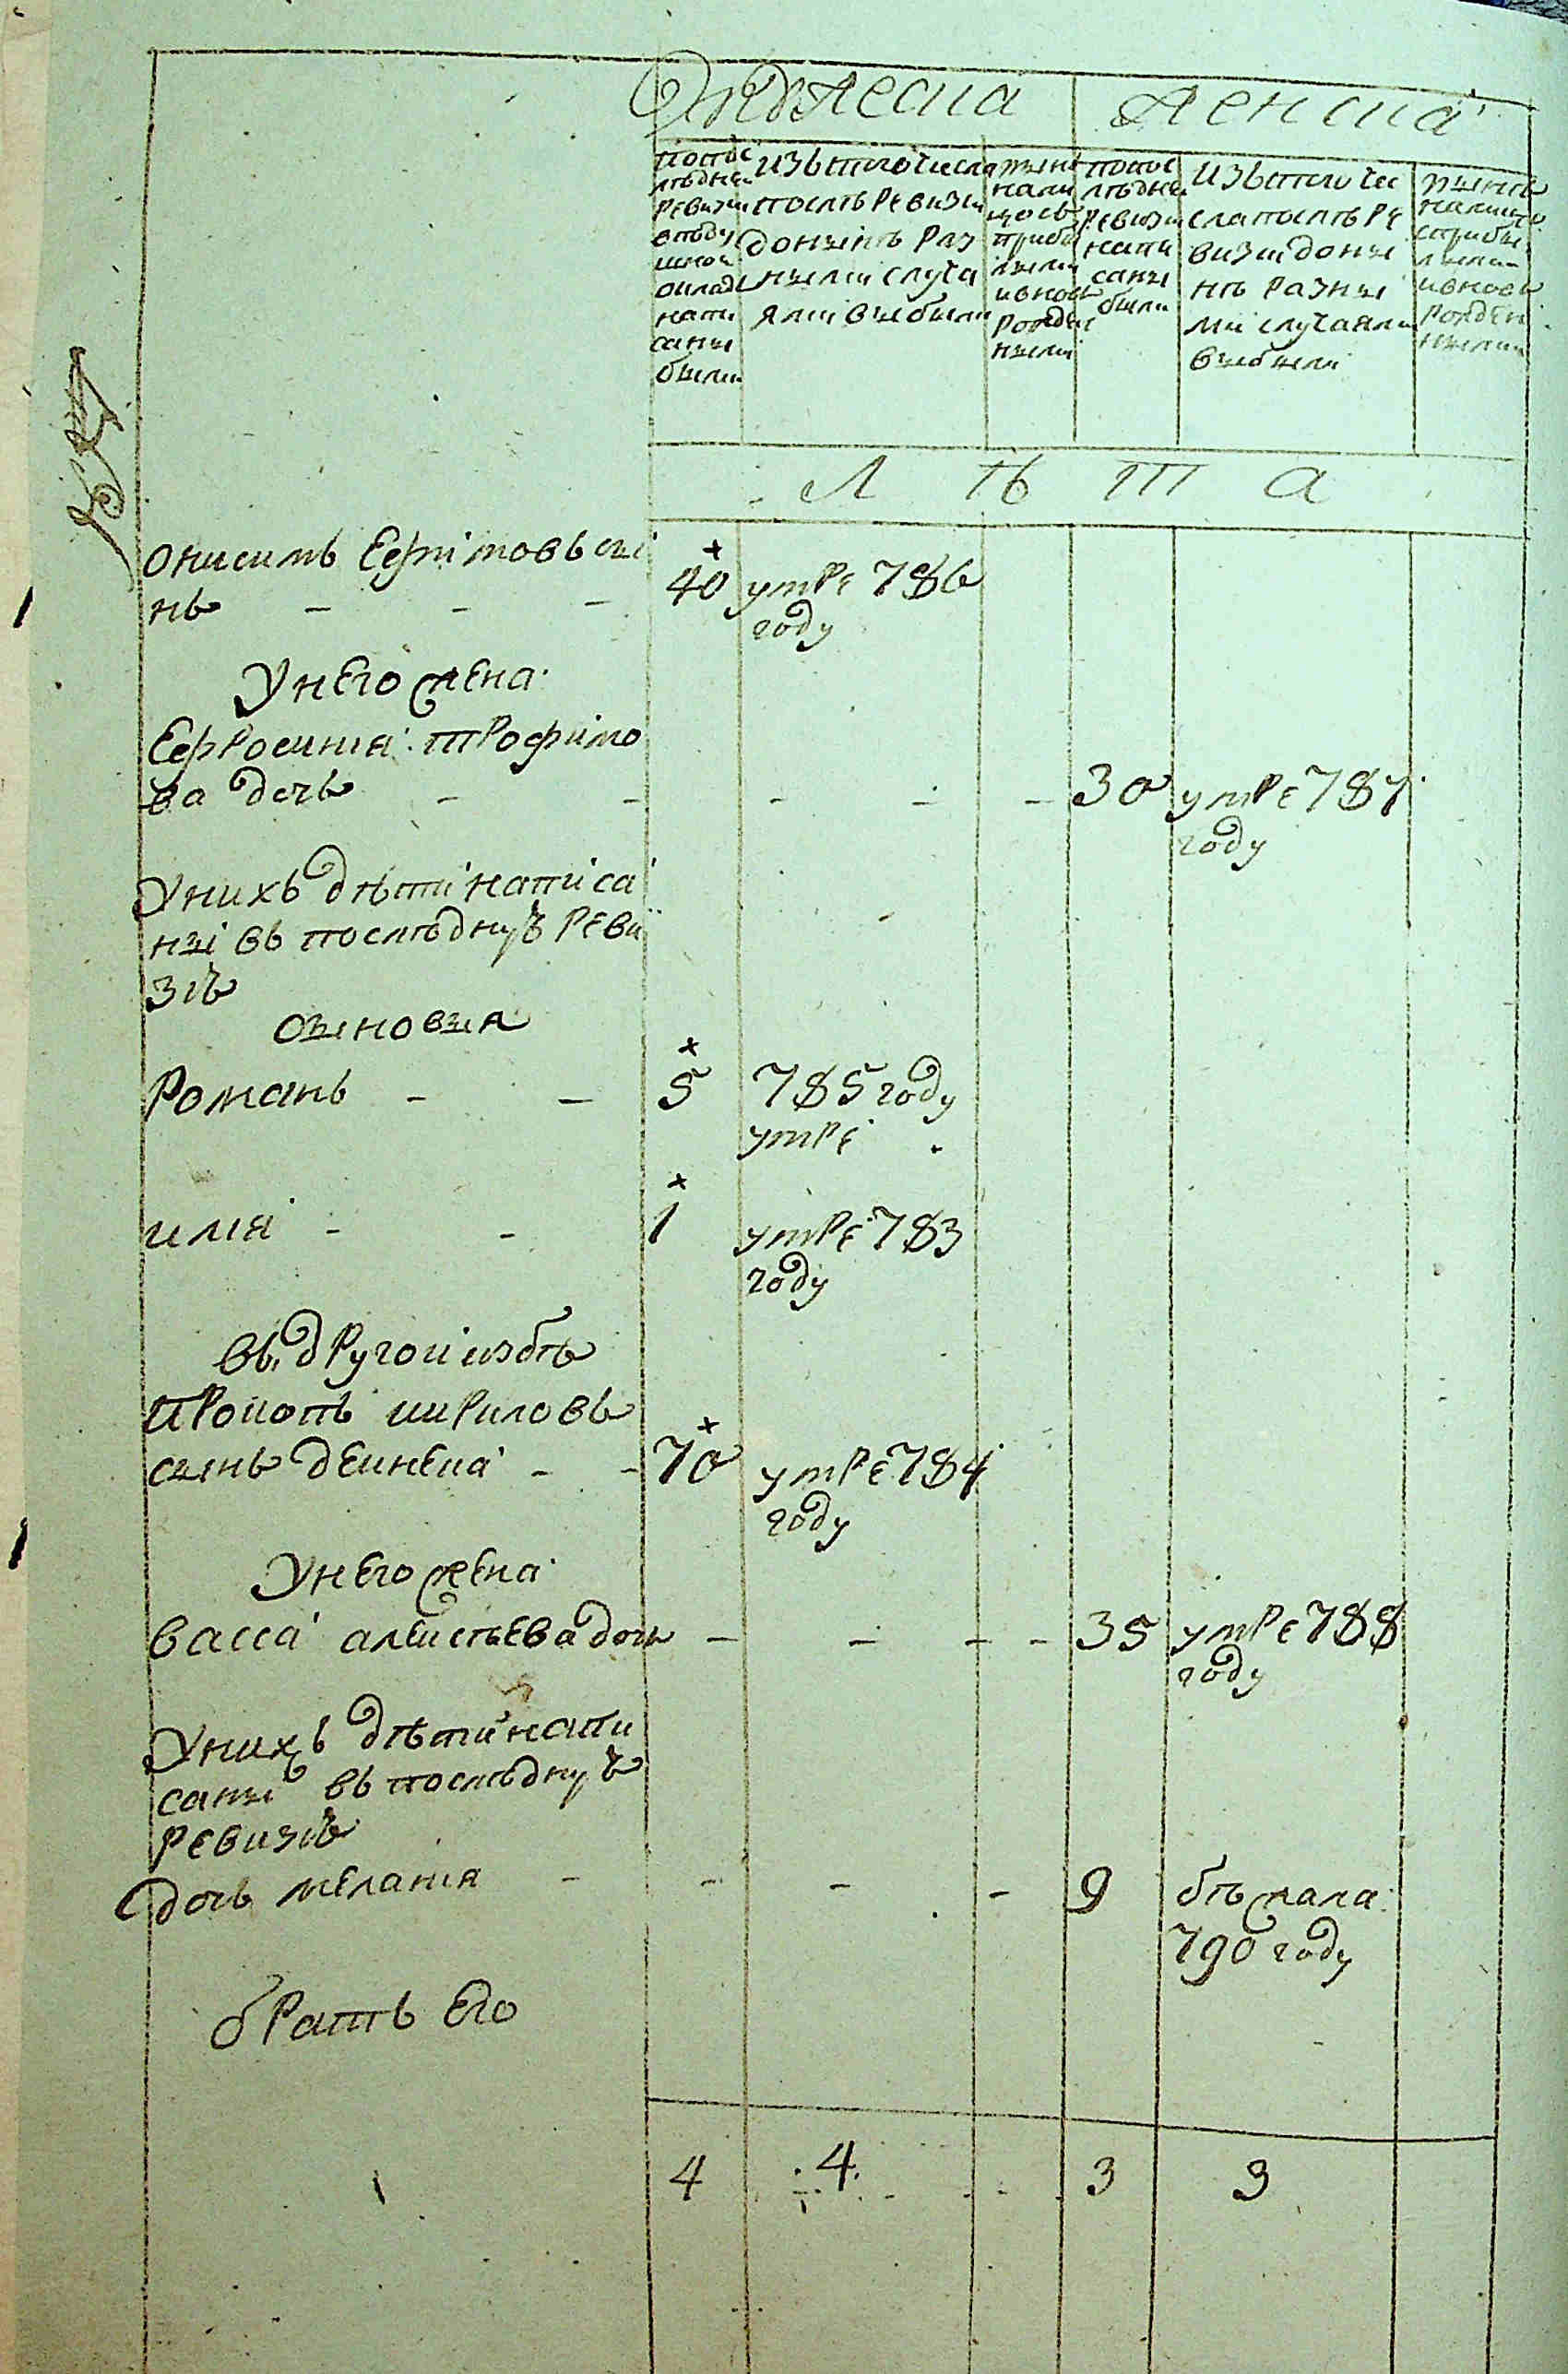 Мужеска Женска
попос лѣдней ревизии вподу шной окладъ напи саны были
изътого числа послѣ ревизии донынѣ раз ными случа ями выбыли
ныне нали цось прибы лыми ивновь рожден ными
попос лѣдней ревизии напи саны были
изътого чис ла послѣ ре визии доны нѣ разны ми случаями выбыли
ныне налицо сприбы лыми ивновь рожден ными
Л ѣ т а
онисимъ Ееѳимовъ сы
нъ - - - 40 умре 786
году
Унего жена
Ееѳросиния трофимо
ва дочь - - - - - 30 умре 787
году
Унихъ дѣти написа
ны въ последную реви
зию
Сыновья
Романъ - - 5 785 году
умре
илия - - 1 умре 783
году
въ другой избѣ
Прокопъ кириловъ
сынъ деинека - - 70 умре 784
году
Унего жена
васса алексѣева дочь - - - - 35 умре 788
году
Унихъ дѣти напи
саны въ последную
ревизию
дочь мелания - - - - 9 бѣжала
790 году
братъ его
4 4 - - 3 3